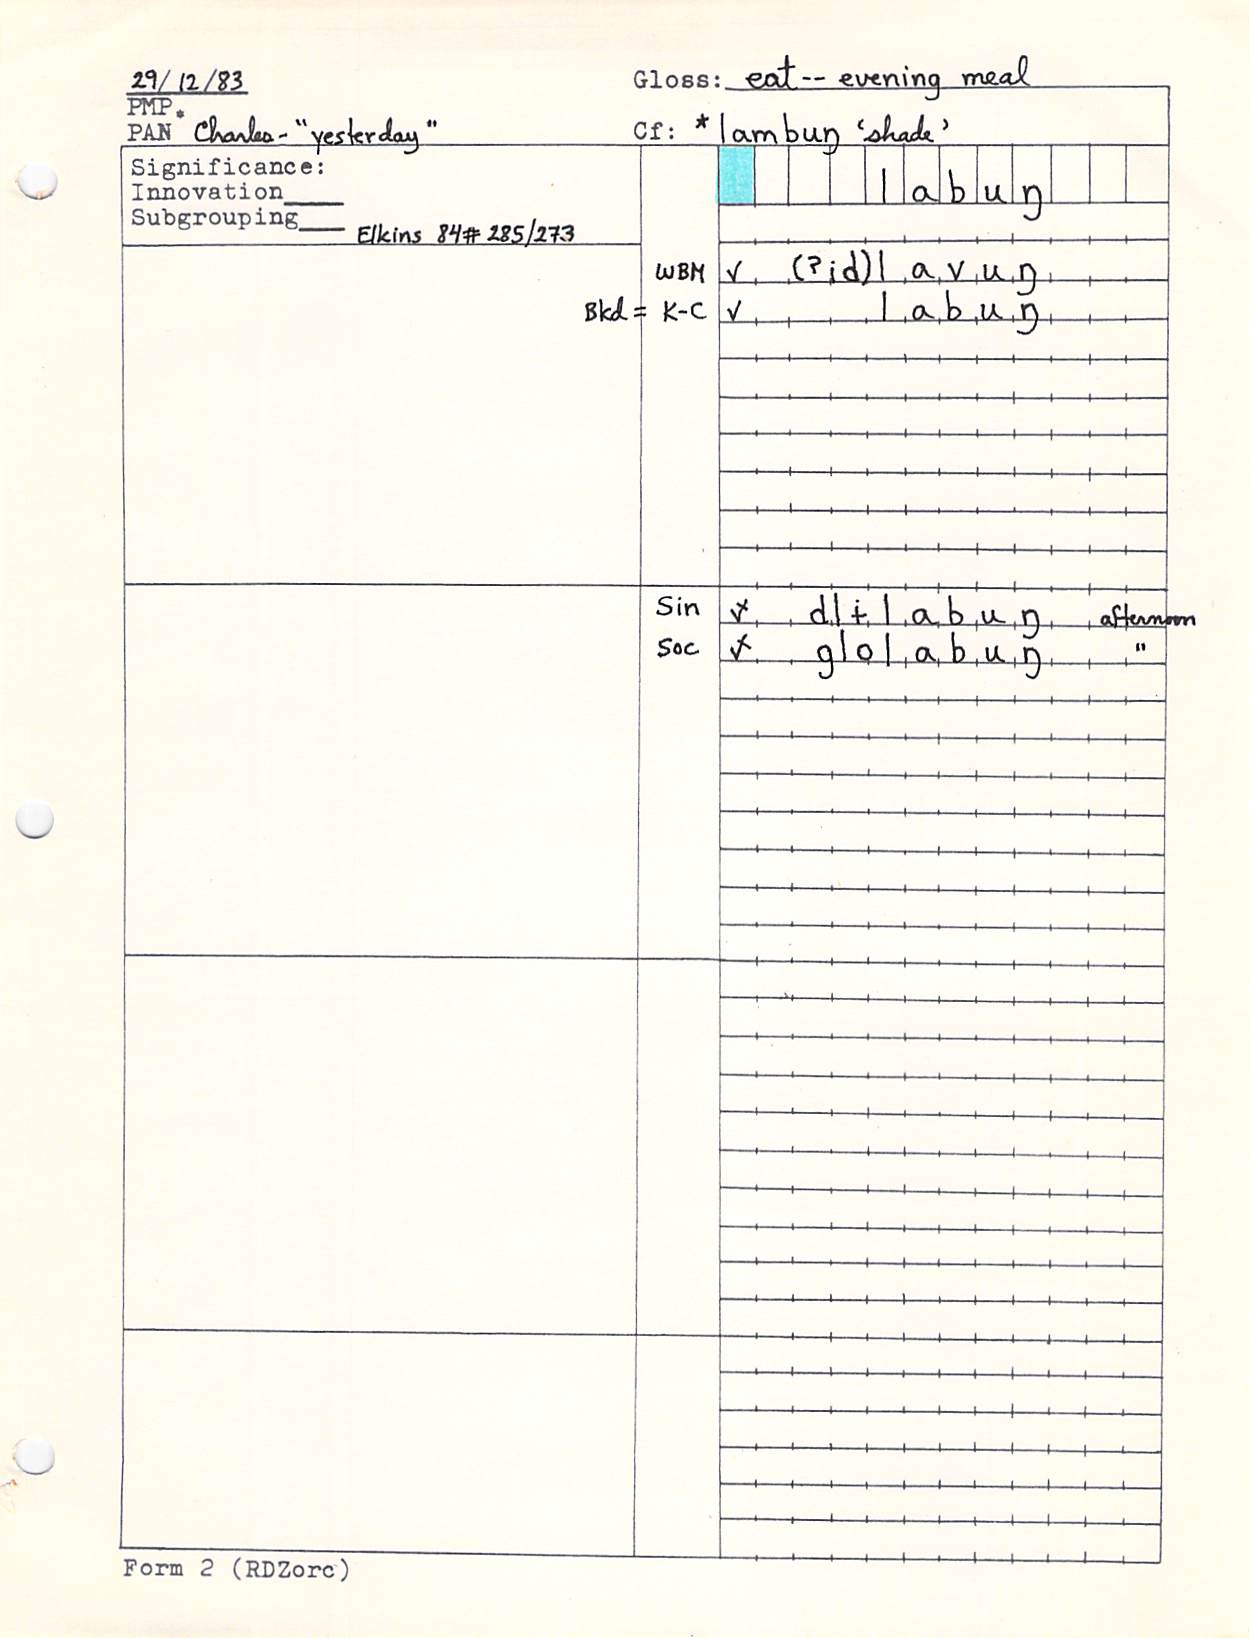 29/12/83
Gloss: eat -- evening meal
PMP *
PAN Charles - "yesterday"
Cf: *lambuŋ 'shade'
Significance:
Innovation____
Subgrouping___ Elkins 84# 285/273
labuŋ
WBM ✓ (?id)lavuŋ
Bkd = K-C ✓ labuŋ
Sin d|ɨ|abuŋ afternoon
Soc g|o|abuŋ "
Form 2 (RDZorc)